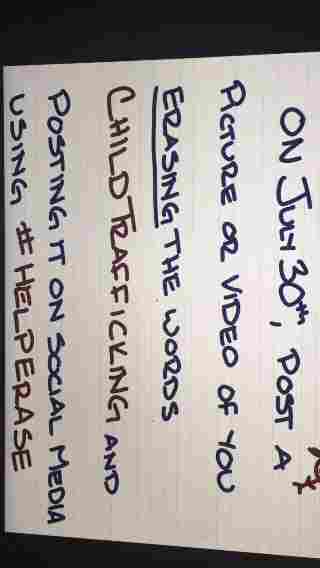 ON JULY 30th, POST A
PICTURE OR VIDEO OF YOU
ERASING THE WORDS
CHILD TRAFFICKING AND
POSTING IT ON SOCIAL MEDIA
USING #HELPERASE